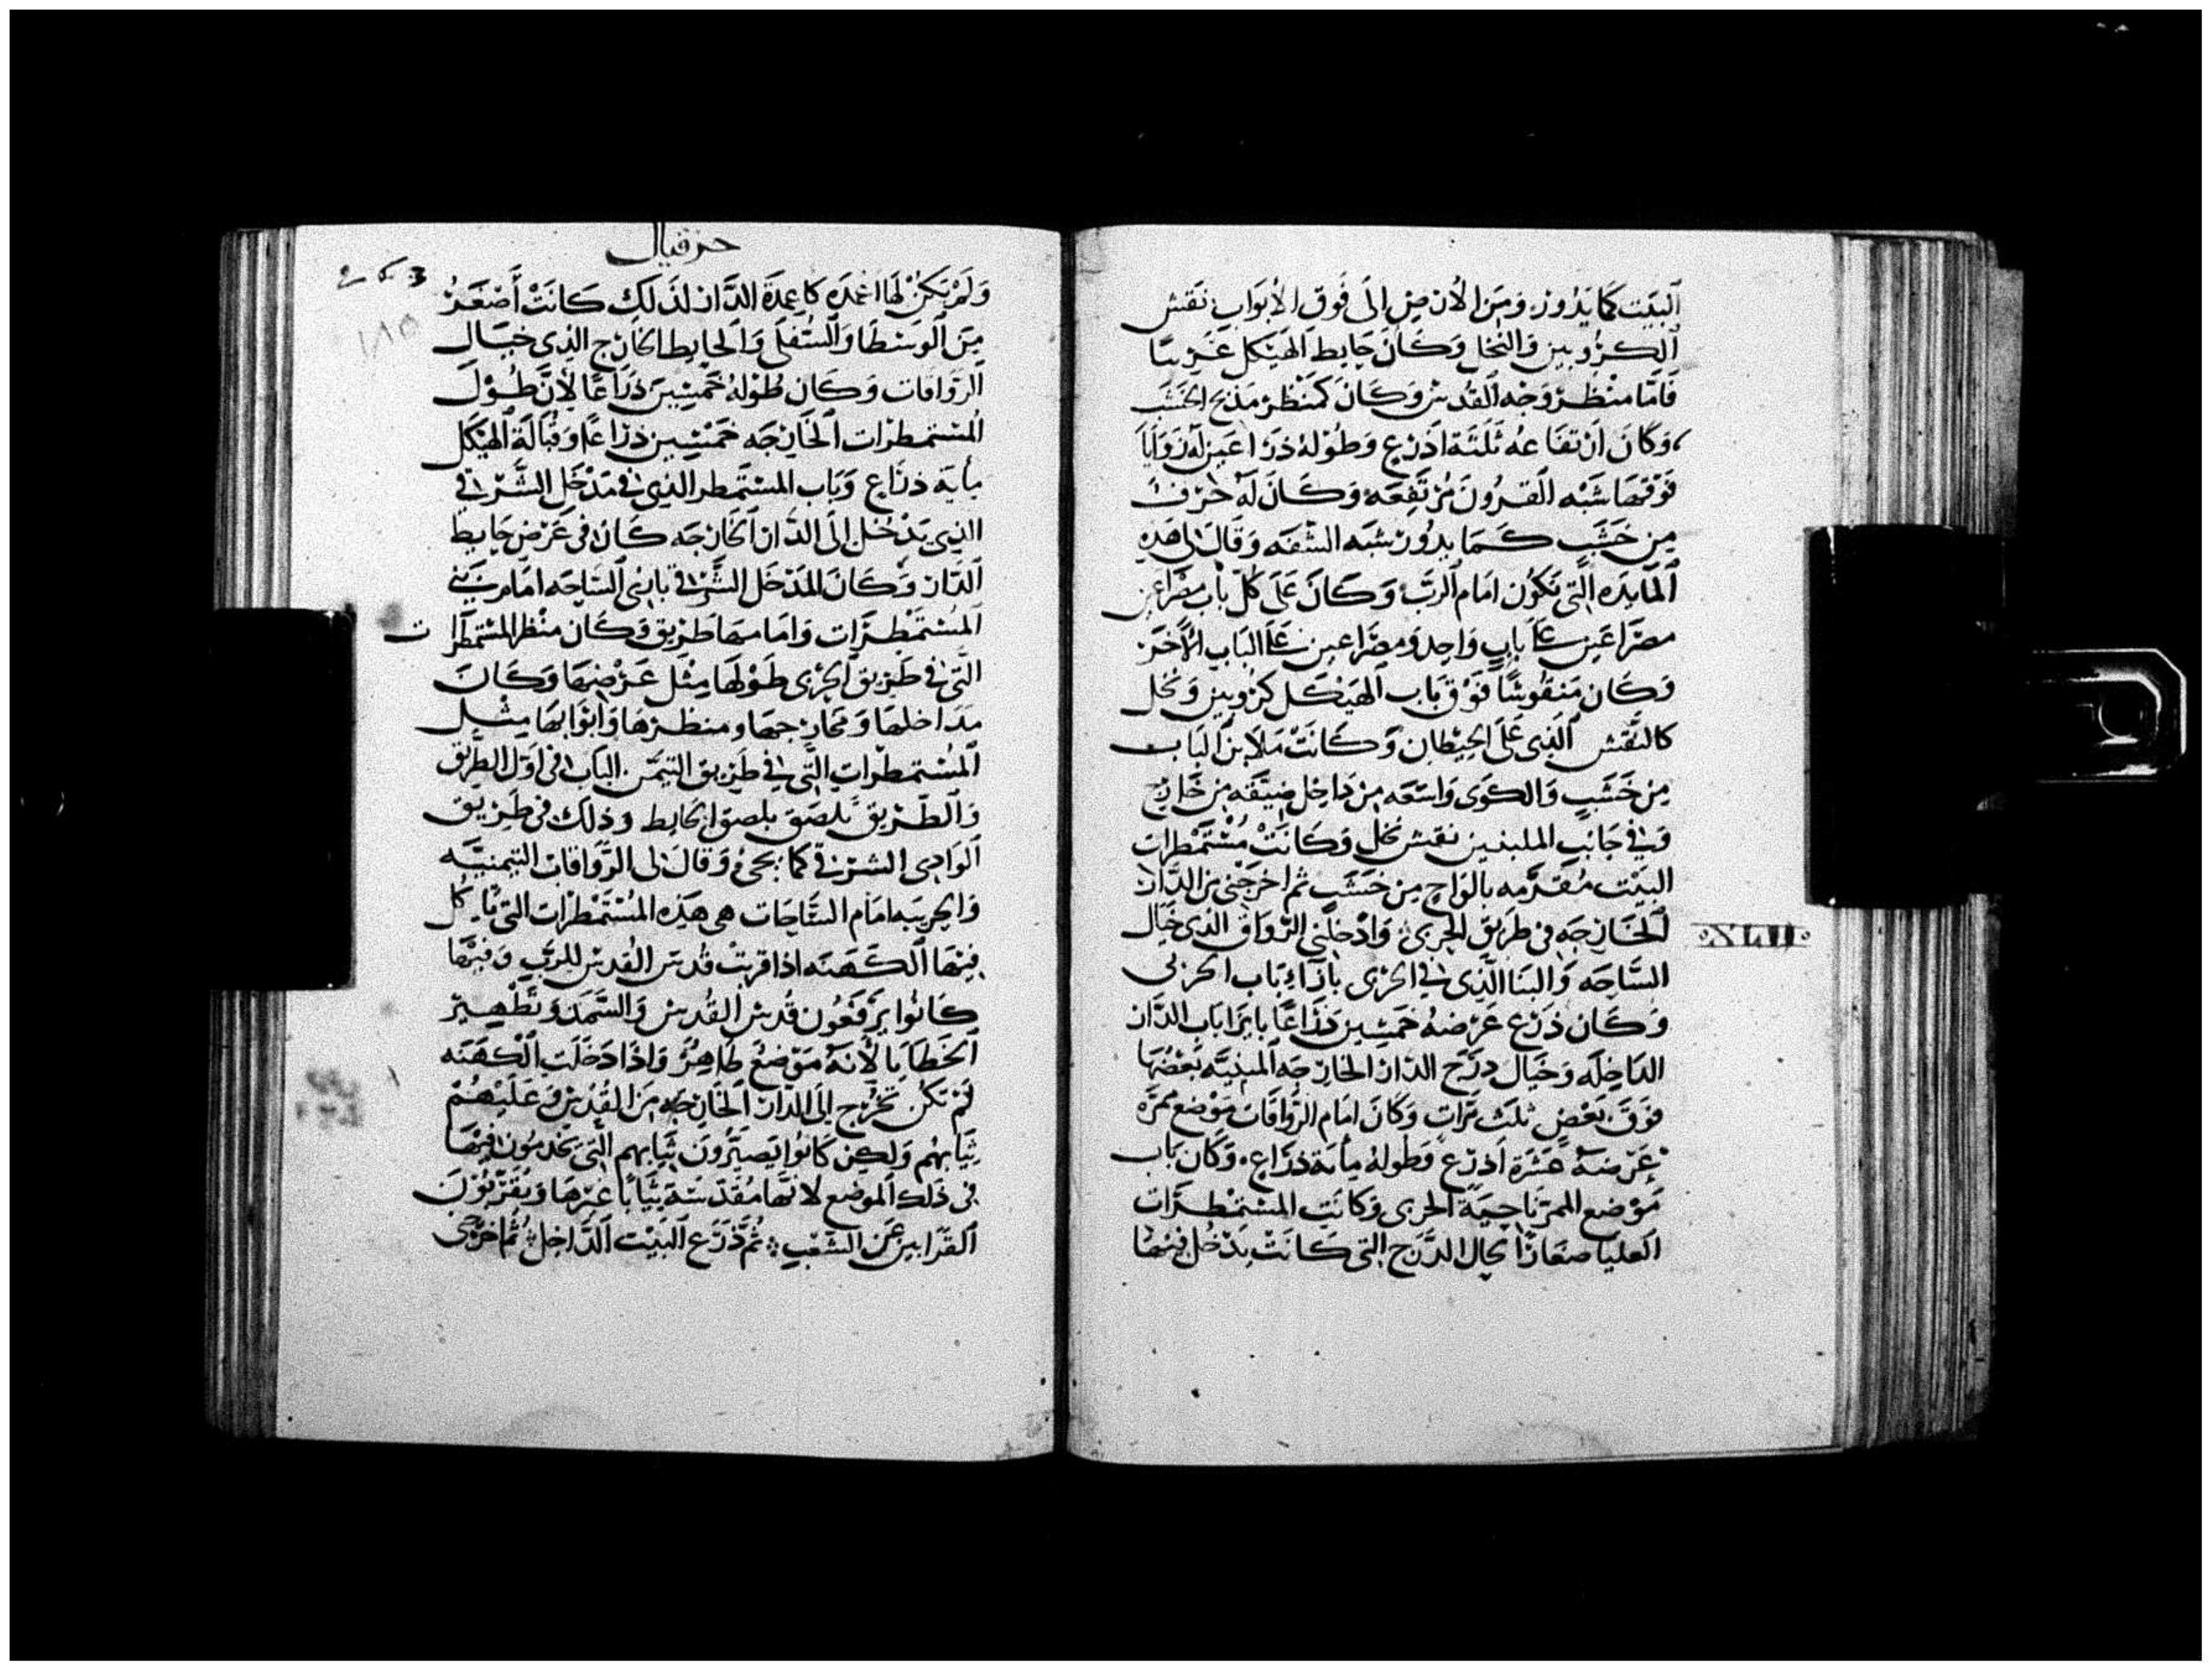 البَيت كما يَدُور. ومِن الأرض إلى فوق الأبواب نقش
الكروبين والنخل وكان حايط الهيكل
فاما منظر وَجْه القُدس وَكانَ كمنظر مَذبح الخشب
وَكانَ ارتفاعه ثلثة اذرع وَطُوله ذراعين له زَوَايَا
فَوْقهَا شَبْه القُرُونَ مُرْتَفِعَه وَكَانَ لَهُ حَرْف
مِن خَشَبٍ كَمَا يدُور شبه الشفَه وَقالَ لى هَذِه
المَايدَه التي تكُون امَام الرَبّ وَكانَ عَلَى كل باب مصراعين
مصراعين على بابٍ وَاحِد وَمصرَاعين على البَاب الأخر
وَكان مَنقُوشًا فَوْق باب الهَيْكل كرُوبين وَنخل
كالنقش الذي عَلى الحيطان وَكَانَتْ ملابن البَاب
مِن خَشَبٍ وَالكوَى وَاسعَه مِن دَاخِل ضيّقه من خَارج
وَفي جَانب الملبنين نقش نخل وَكَانتْ مُسْتَمطرات
البَيْت مُقَدّمه بالوَاح مِن خشَب ثم اخرجَني من الدّار
الخَارجَه في طَرِيق الجربى وَادْخلني الرّوَاق الذي حيَال
XLII
السَّاحَه وَالبنا الذي في الجربى بازاء باب الجربى
وَكان ذرْع عَرْضهُ خمسِين ذرَاعًا بازا باب الدّار
الدَاخِلَه وَحيَال درَج الدّار الخَارجَه المبنيّه بَعْضُهَا
فَوقَ بَعْضٍ ثلث مرّات وَكَانَ امام الرّوَاقات مَوْضع ممرّه
عَرْضهُ عَشَرَة اَذرع وَطُولهُ مِايَة ذرَاع. وَكان بَاب
مَوْضع الممرّ نَاحيَة الجربى وَكانَتِ المسْتمطرَات
العليا صغارًا بحال الدّرَج التي كَانَتْ يدْخُل فِيهَا
حزقيال
وَلَمْ تَكُنْ لهَا اعْمدَه كاعمدَة الدَّار لذَلك كَانَتْ أَصْغَرُ
١٨٥
مِنَ الوَسْطَا وَالسُفلَى وَالحايط الخارج الذي حيَال
الروَاقات وَكانَ طُوْلهُ خَمْسِيْنَ ذرَاعًا لأنَّ طُوْلَ
المُسْتَمطرات الخَارجَه خَمْسِين ذرَاعًا وَقُبَالَة الهَيْكل
مِايَة ذرَاع وَبَاب المسْتَمطر الذي في مَدْخَل الشّرْقي
الذي يدْخُل إلَى الدّار الخَارجَه كان في عَرْض حايط
الدّار وَكَانَ المَدْخَل الشّرْقى بازي السّاحَه امَام بَيْتي
المُسْتَمْطرَات وَامَامهَا طَريق وَكَان منْظر المُسْتمطرات
التي في طَرِيق الجربى طُوْلهَا مِثْل عَرْضهَا وَكَانَ
مدَاخلهَا وَمخارجهَا ومنظرهَا وَابوَابهَا مِثْل
المُسْتمطرَاتِ التي في طَرِيق التَيمَن البَاب في اوّل الطَريق
وَالطَّرِيق تَلصَق بلصق الحَايط وذلك في طَريق
الوَادِى الشرْقي كما يجىُ وَقالَ لى الرّوَاقات التيمنيّه
وَالجربيَه امَام السَّاحَات هي هَذه المُسْتَمْطرات التي يأكل
فِيْهَا الكَهَنَه اذا قربتْ قُدس القدس للرب وَفيْهَا
كَانُوا يَرْفَعُون قُدس القُدس وَالسَّمَد وَتطْهِيرْ
الخطَايا لأنهُ مَوْضعٌ طَاهِرٌ وَاذا دَخَلت الكهَنَه
لَمْ تكُن تخْرُج إلى الدّار الخَارجَه مِنَ القُدْس وَعَلَيْهُمْ
ثيَابهُم وَلكِن كَانُوا يَصيرُونَ ثيَابهم التي يخدمُون فِيهَا
في ذَلك الموْضع لانهَا مُقَدّسَة ثِيَابًا غيْرهَا وَيُقَرّبُوْنَ
القَرَابين عَن الشعْبِ ثمّ ذرَع البَيْت الدَّاخِل ثُمّ اخرَجني